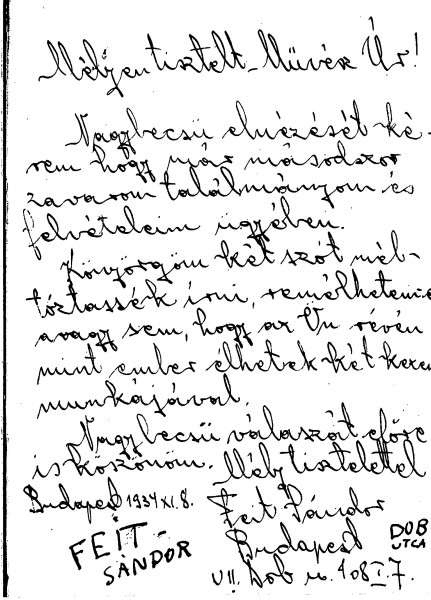 Mélyen tisztelt Művész Úr!
Nagybecsű elnézését ké-
rem hogy már másodszor
zavarom találmányom és
felvételeim ügyében.
Könyörgöm két szót mél-
tóztassék írni, remélhetem-e
avagy sem, hogy az Ön révén
mint ember élhetek két kezem
munkájával.
Nagybecsű válaszát előre
is köszönöm. Mély tisztelettel
Budapest 1934 XI. 8. Feit Sándor
FEIT-
SÁNDOR
Budapest
DOB
UTCA
VII. Dob u. 108 I. 7.